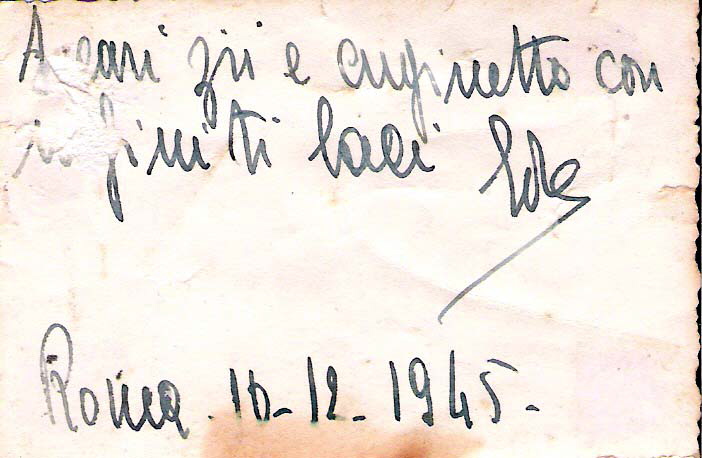 A cari zii e cuginetto con
infiniti baci
Roma 10-12-1945-